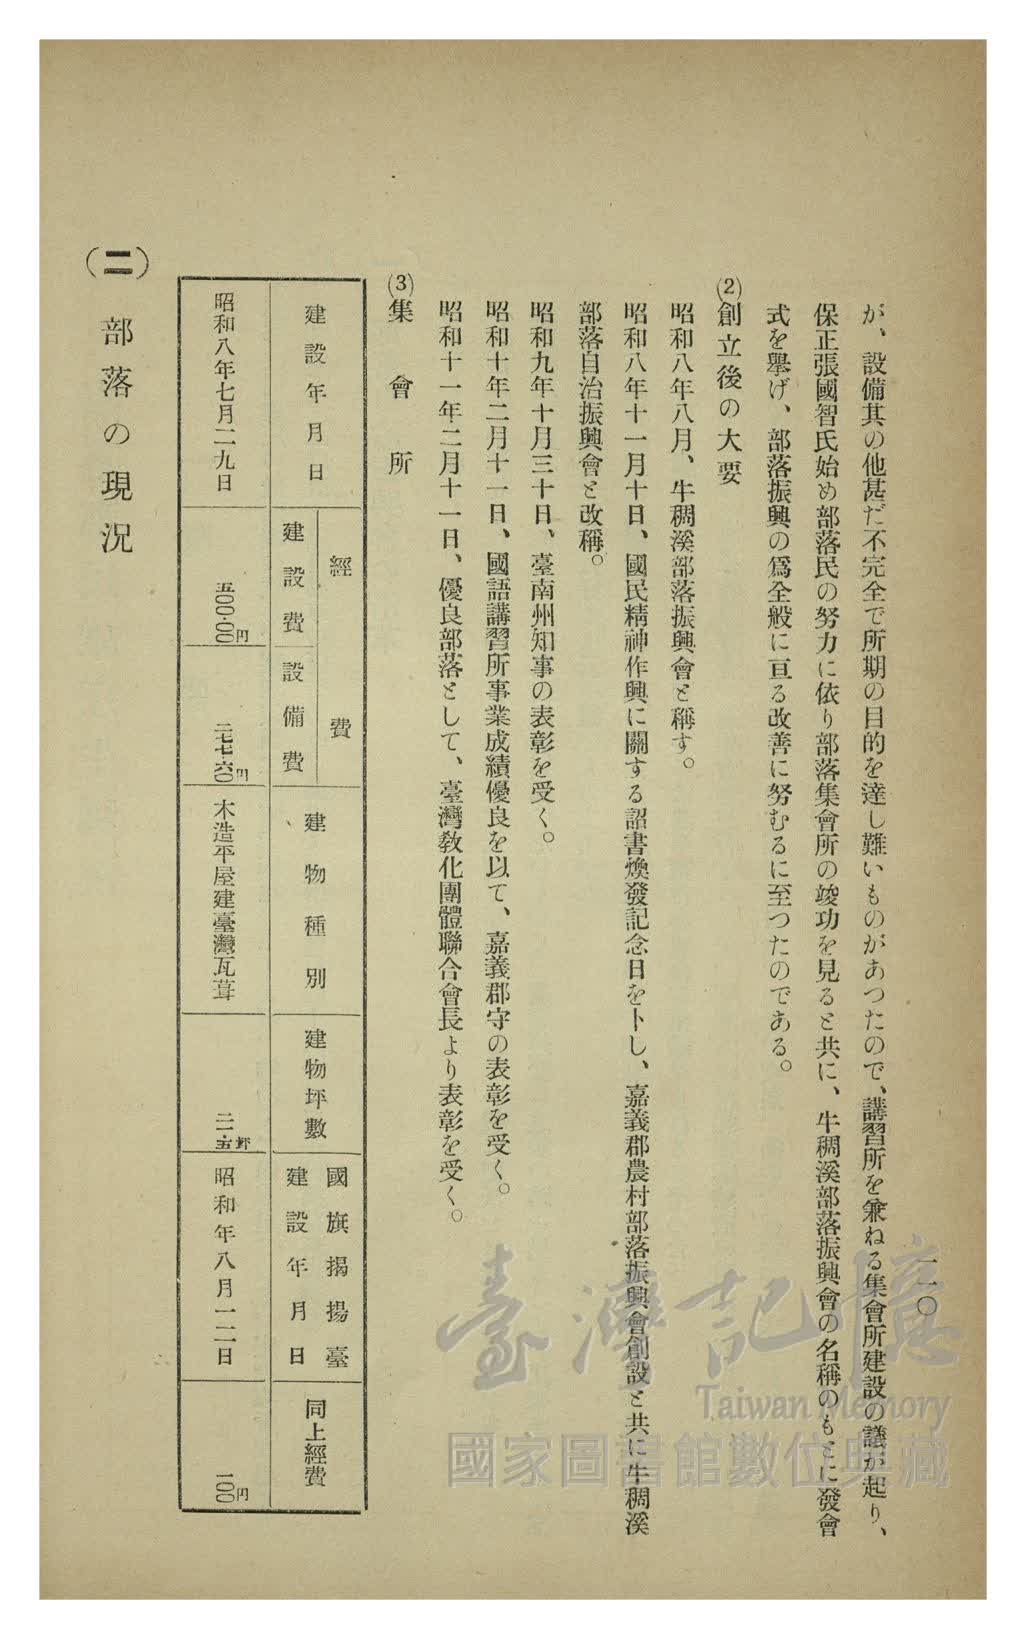 一一〇
が、設備其の他甚だ不完全で所期の目的を達し難いものがあつたので、講習所を兼ねる集會所建設の議が起り、
保正張國智氏始め部落民の努力に依り部落集會所の竣功を見ると共に、牛稠溪部落振興會の名稱のもとに發會
式を擧げ、部落振興の爲全般に亘る改善に努むるに至つたのである。
(2)創立後の大要
昭和八年八月、牛稠溪部落振興會と稱す。
昭和八年十一月十日、國民精神作興に關する詔書煥發記念日を卜し、嘉義郡農村部落振興會創設と共に牛稠溪
部落自治振興會と改稱。
昭和九年十月三十日、臺南州知事の表彰を受く。
昭和十年二月十一日、國語講習所事業成績優良を以て、嘉義郡守の表彰を受く。
昭和十一年二月十一日、優良部落として、臺灣敎化團體聯合會長より表彰を受く。
(3)集會所
建設年月日
經費
建設費
設備費
建物種別
建物坪數
國旗揭揚臺
建設年月日
同上經費
昭和八年七月二九日
五〇〇・〇〇円
二七七・六〇円
木造平屋建臺灣瓦葺
二一・五坪
昭和年八月一二日
一〇〇円
(二) 部落の現況
臺灣記憶
Taiwan Memory
國家圖書館數位典藏